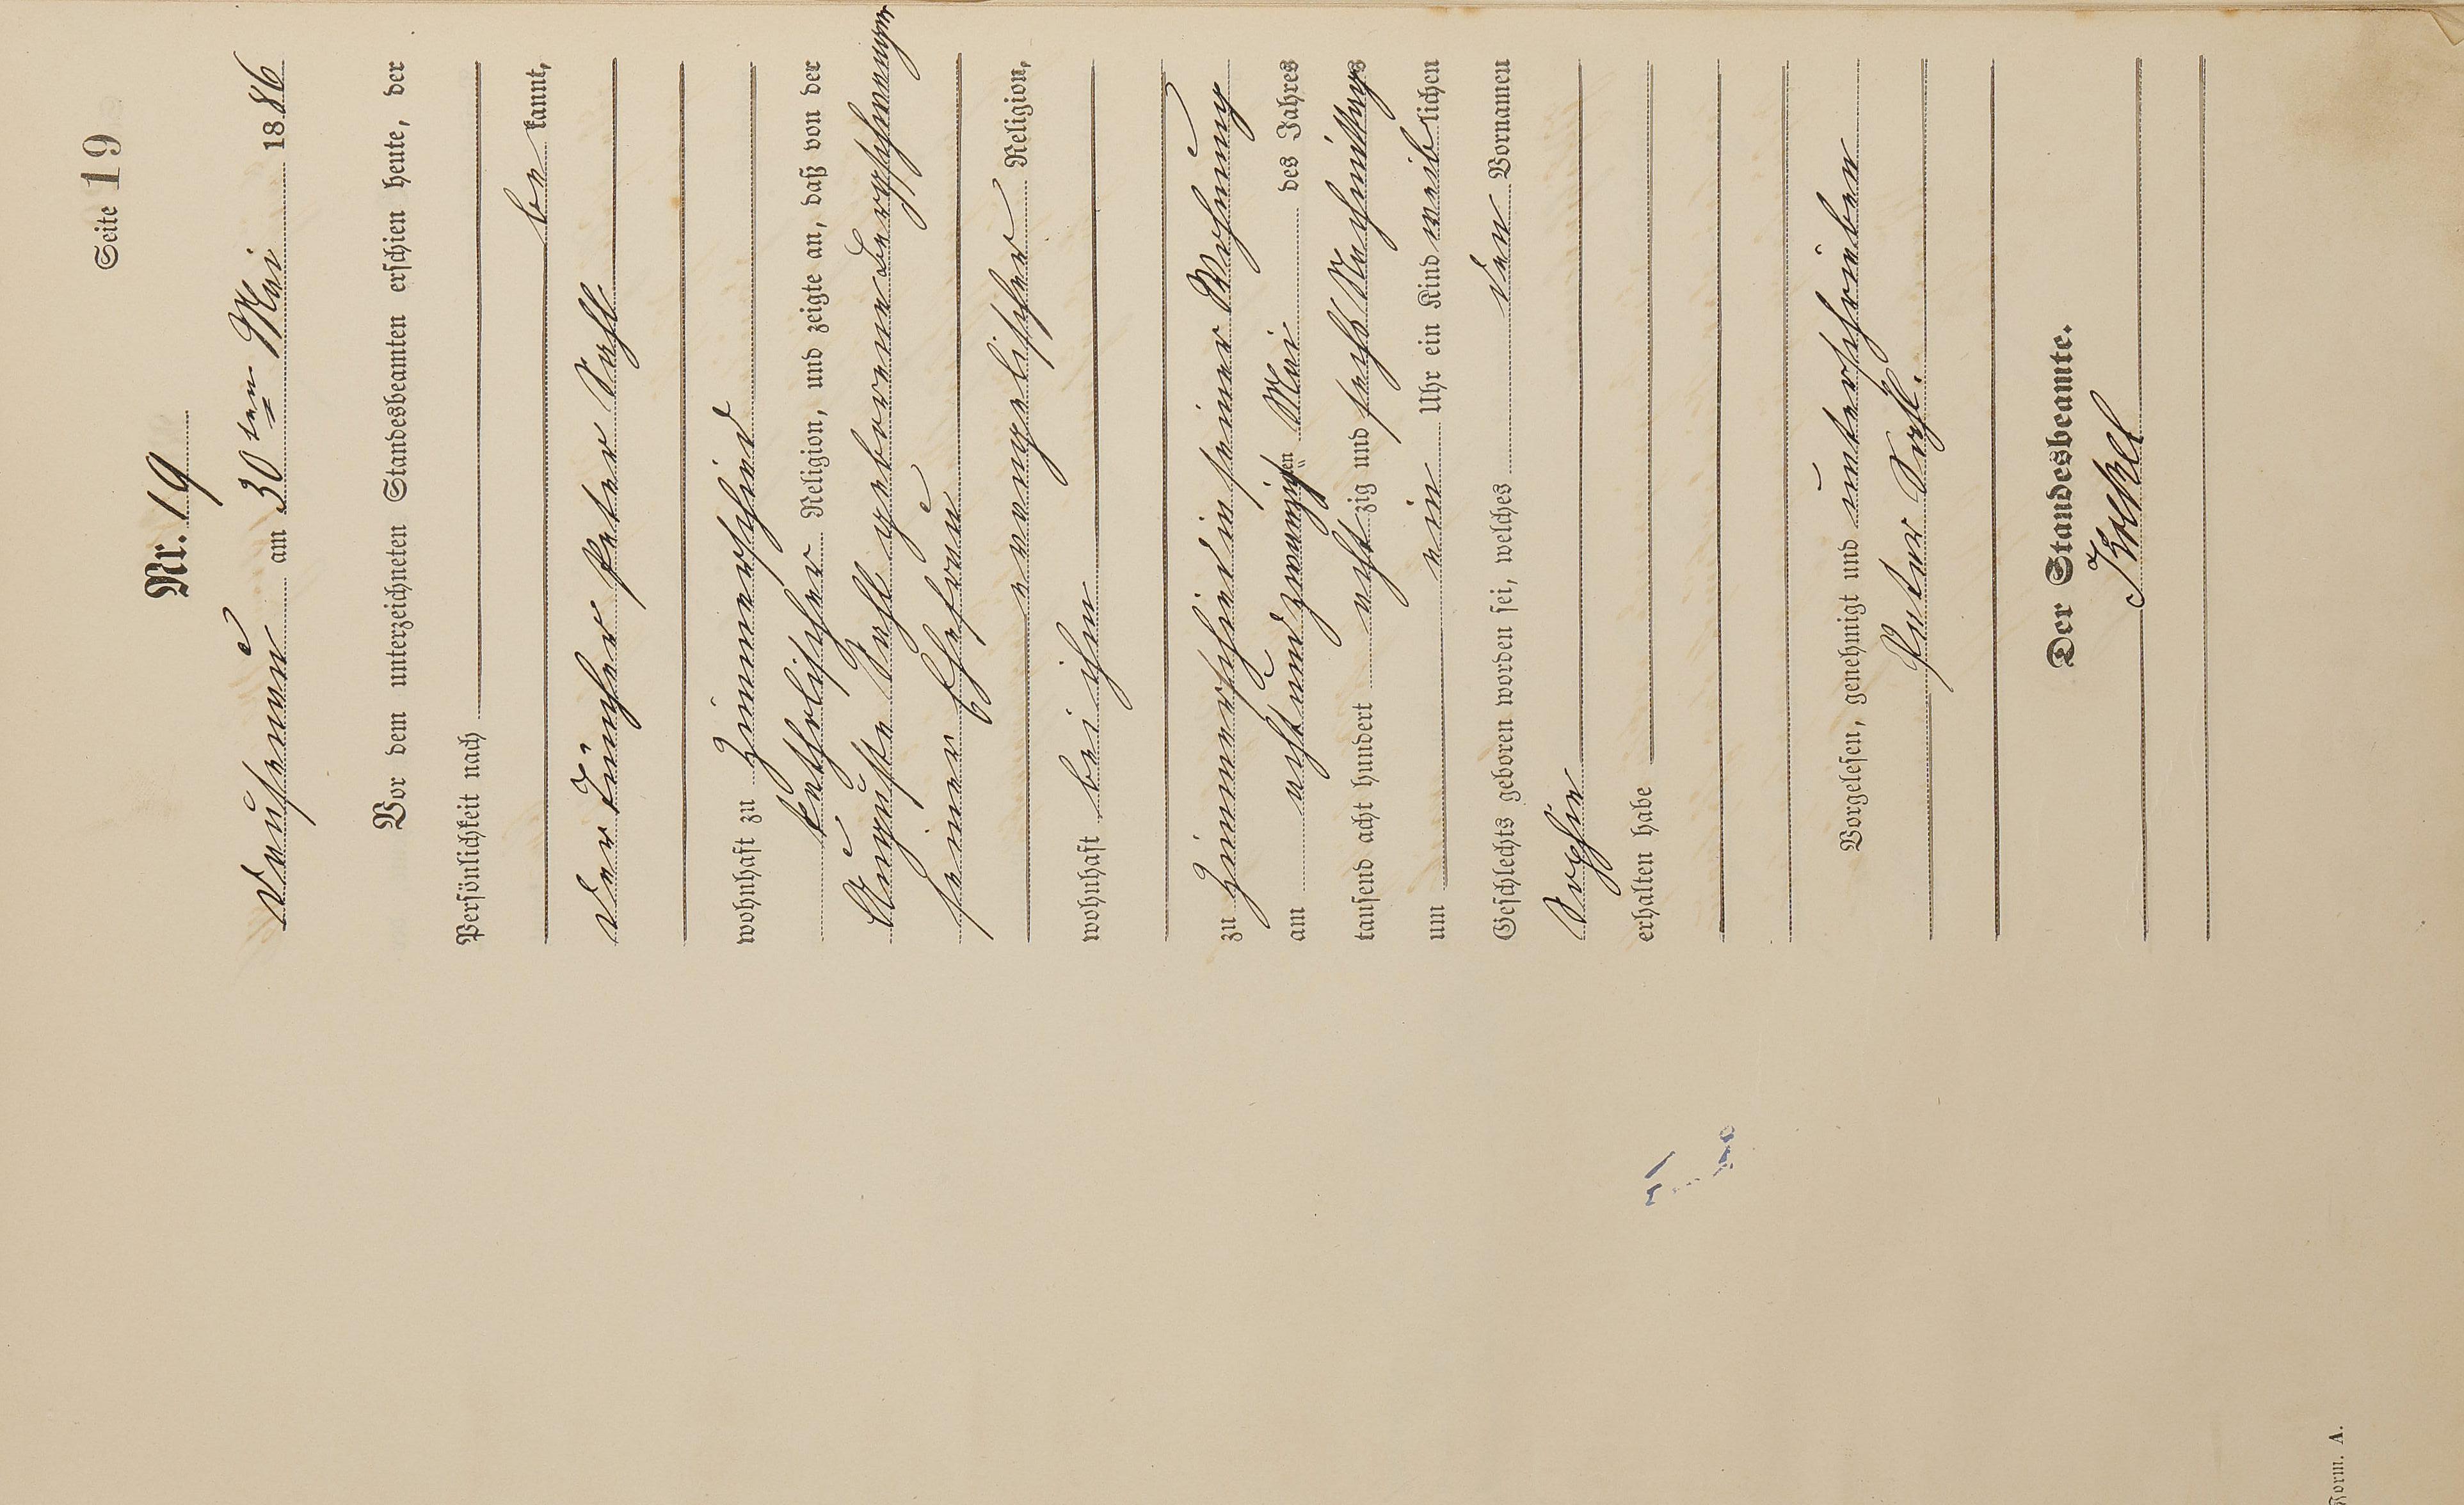 Seite 19
Nr. 19
Dausenau am 30ten Mai 1886
Vor dem unterzeichneten Standesbeamten erschien heute, der
Persönlichkeit nach
be kannt,
der Tüncher Peter
wohnhaft zu Zimmerschied
katholischer Religion, und zeigte an, daß von der
Auguste geborene
seiner Ehefrau
evangelischer Religion,
wohnhaft bei ihm
zu Zimmerschied in seiner Wohnung
am acht und zwanzigsten Mai des Jahres
tausend acht hundert acht zig und sechs Nachmittags
um ein Uhr ein Kind weiblichen
Geschlechts geboren worden sei, welches den Vornamen
Sophie
erhalten habe
Vorgelesen, genehmigt und unterschrieben
Peter
Der Standesbeamte.
Form. A.